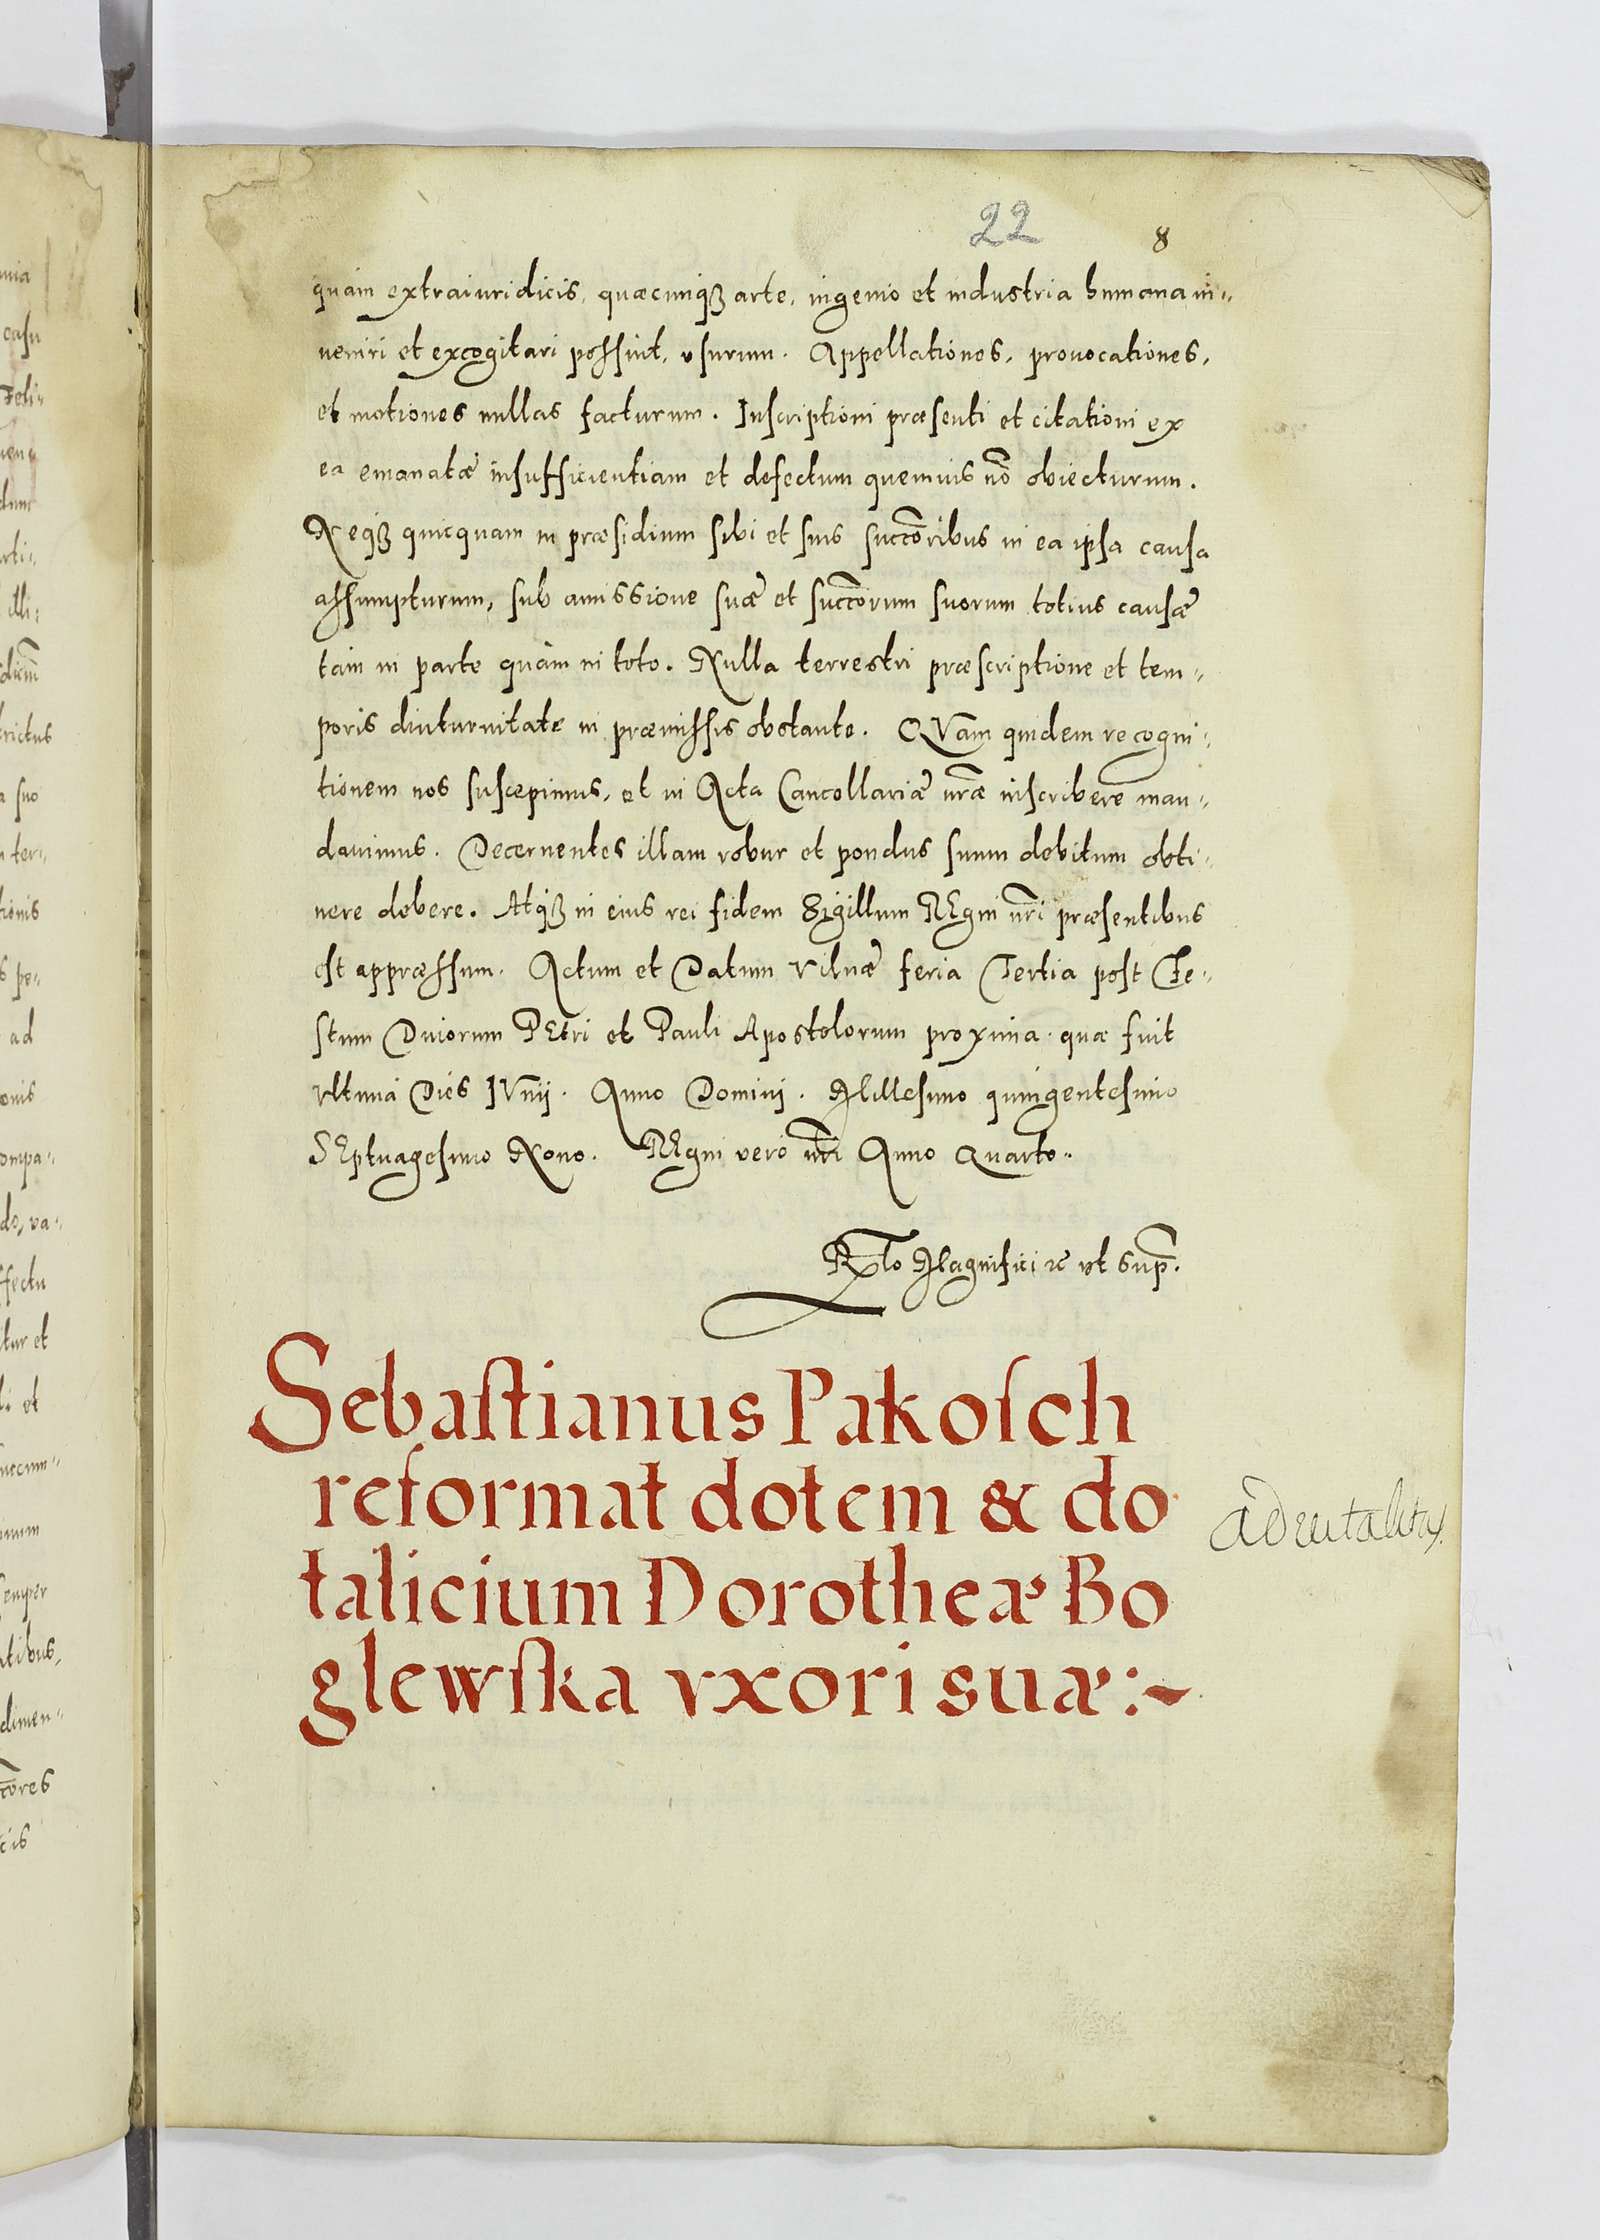 22
8
quàm extraiuridicis, quæcunqꝫ arte, ingenio et industria humana in-
veniri et excogitari possint, vsurum. Appellationes, provocationes,
et motiones nullas facturum. Inscriptioni præsenti et citationi ex
ea emanatæ insufficientiam et defectum quemvis nõ obiecturum.
Neqꝫ quicquam in præsidium sibi et suis succõribus in ea ipsa causa
assumpturum, sub amissione suæ et succõrum suorum totius causæ
tàm in parte quàm in toto. Nulla terrestri præscriptione et tem-
poris diuturnitate in præmissis obstante. QVam quidem recogni-
tionem nos suscepimus, et in Acta Cancellariæ nr̃æ inscribere man-
davimus. Decernentes illam robur et pondus suum debitum obti-
nere debere. Atqꝫ in eius rei fidem Sigillum REgni nr̃i præsentibus
est appræssum. Actum et Datum Vilnæ feria Tertia post Fe-
stum Divorum PEtri et Pauli Apostolorum proxima quæ fuit
vltima Dies IVnij. Anno Dominj. Millesimo quingentesimo
SEptuagesimo Nono. REgni verò nr̃i Anno Quarto.
Rlõ Magnifici ꝛc vt sup̃.
Sebastianus Pakosch
reformat dotem & do
talicium Dorotheæ Bo
glewska vxori suæ:~